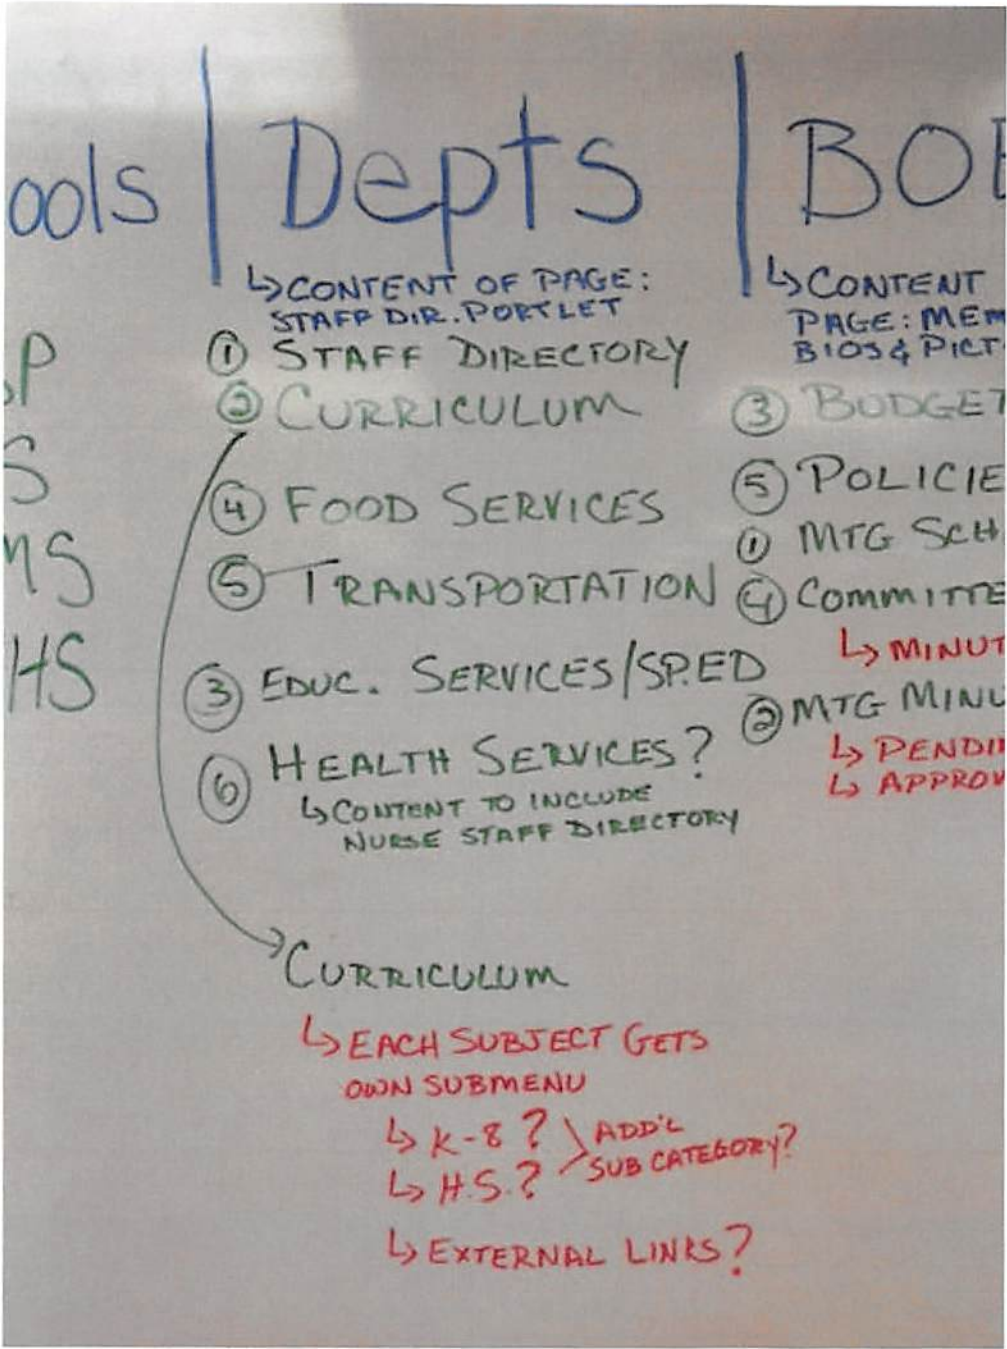 ools | Depts | BOE
↳ CONTENT OF PAGE:
STAFF DIR. PORTLET
① STAFF DIRECTORY
② CURRICULUM
④ FOOD SERVICES
⑤ TRANSPORTATION
③ EDUC. SERVICES/SP.ED
⑥ HEALTH SERVICES?
↳ CONTENT TO INCLUDE
NURSE STAFF DIRECTORY
CURRICULUM
↳ EACH SUBJECT GETS
OWN SUBMENU
↳ K-8 ? \ ADD'L
↳ H.S. ? / SUB CATEGORY?
↳ EXTERNAL LINKS?
↳ CONTENT
PAGE: MEM
BIOS & PICT
③ BUDGET
⑤ POLICIE
① MTG SCH
④ COMMITTE
↳ MINUT
② MTG MINU
↳ PENDI
↳ APPROV
P
S
MS
HS